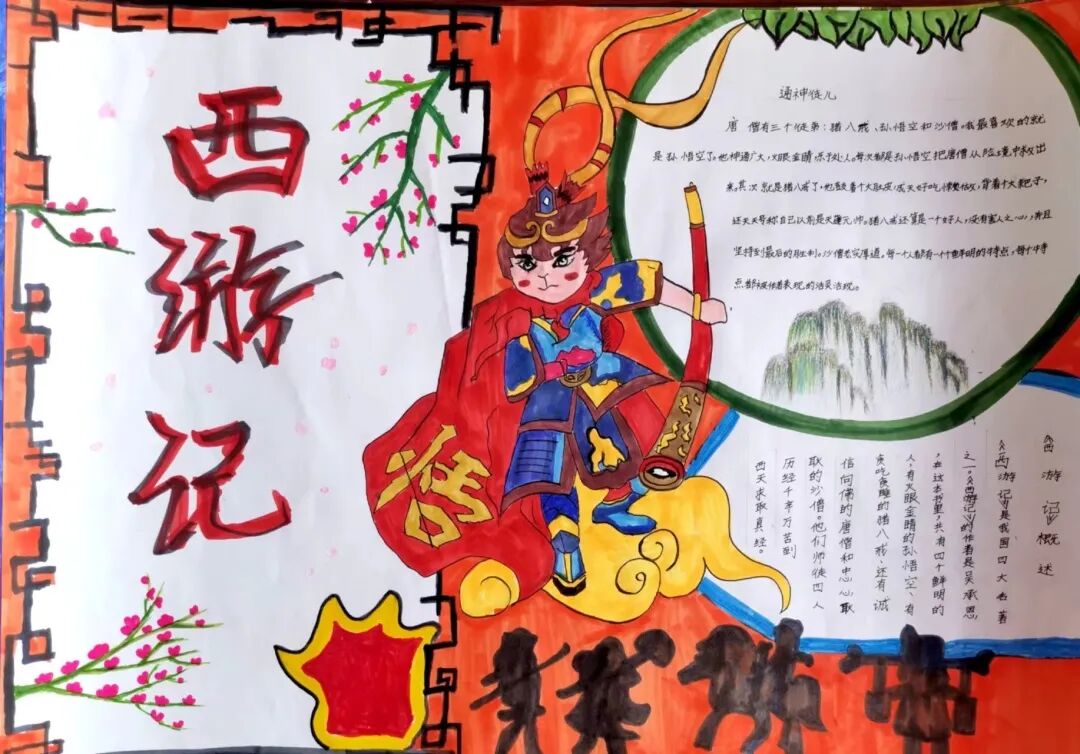 西游记
悟
通神徒儿
唐僧有三个徒弟：猪八戒、孙悟空和沙僧。我最喜欢的就
是孙悟空了。他神通广大，火眼金睛，与众人。每次都是孙悟空把唐僧从险境中救出
来。其次就是猪八戒了，他鼓着个大肚皮，成天好吃懒做，背着个大耙子，
还天天号称自己以前是天蓬元帅。猪八戒还算是一个好人，没有害人之心，并且
坚持到最后的胜利。沙僧老实厚道。每一个人都有一个个鲜明的特点，每个特
点都被作者表现的活灵活现。
《西游记》概述
《西游记》是我国四大名著
之一。《西游记》的作者是吴承恩
，在这本书里，共有四个鲜明的
人，有火眼金睛的孙悟空、有
贪吃贪睡的猪八戒，还有诚
信向佛的唐僧和忠心耿
耿的沙僧。他们师徒四人
历经千辛万苦到
西天求取真经。